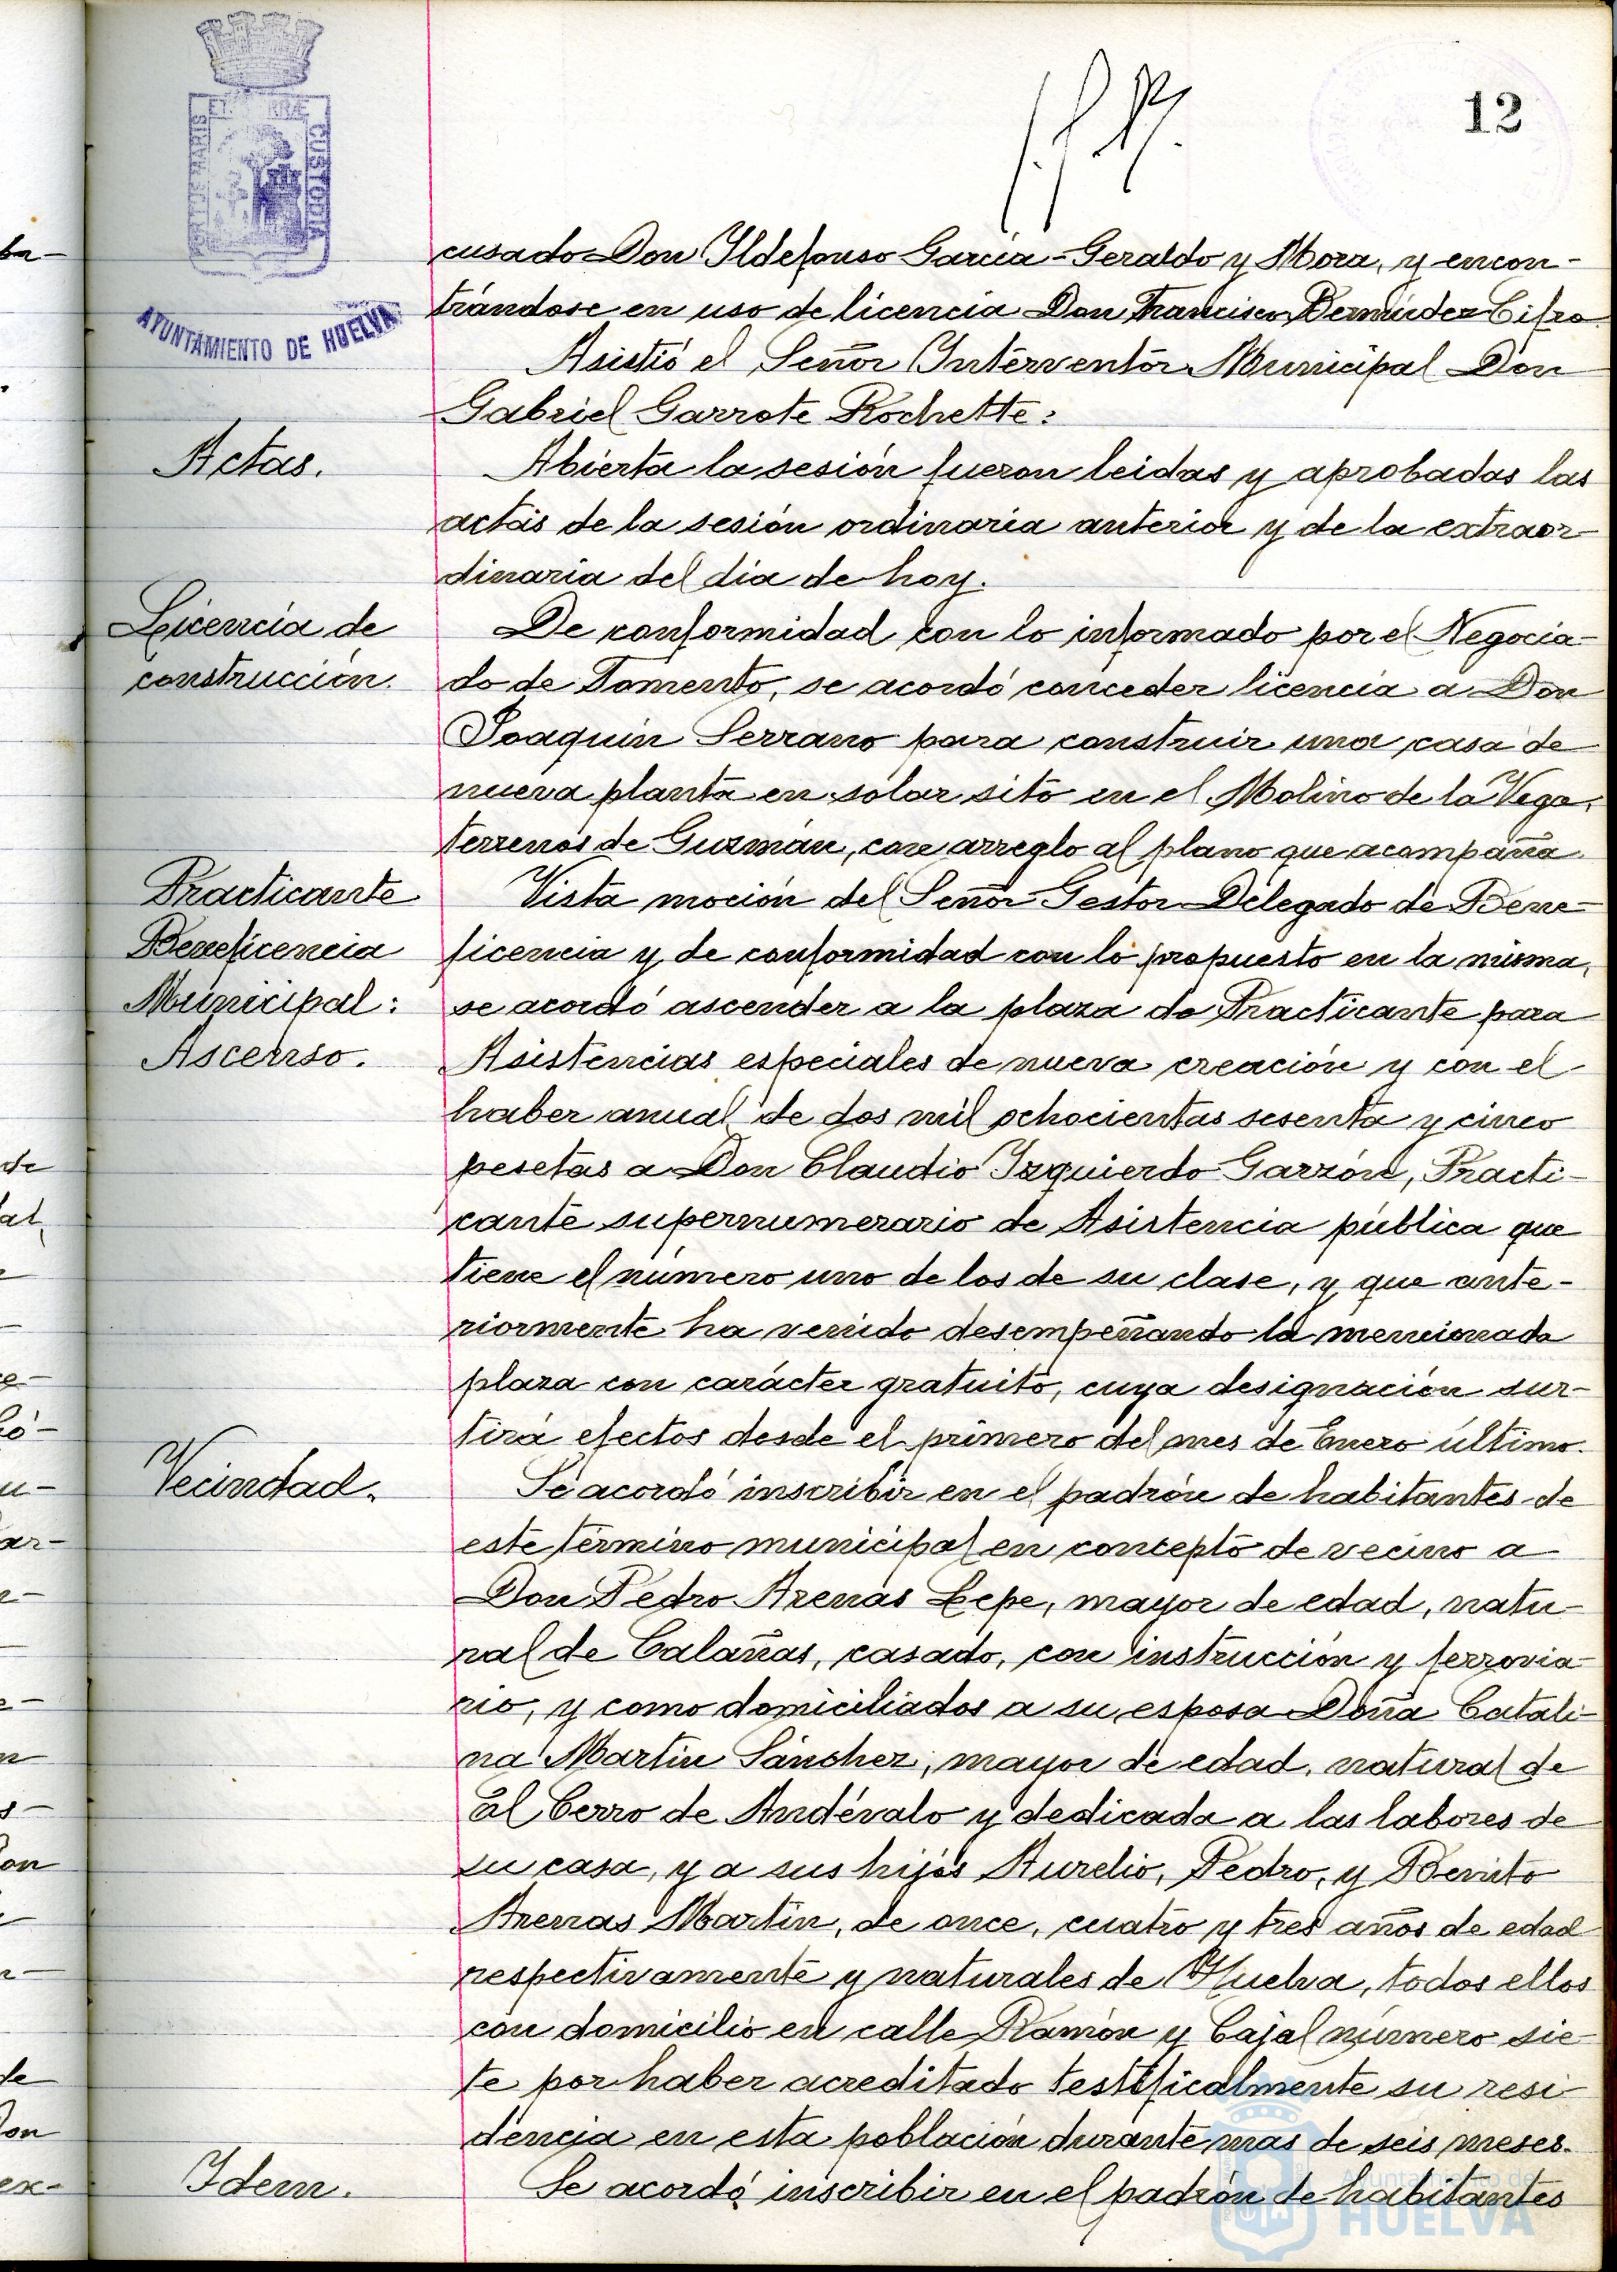 12
PORTUS MARIS ET TERRÆ CUSTODIA
AYUNTAMIENTO DE HUELVA
cusado Don Ildefonso Garcia-Geraldo y Mora, y encon-
trándose en uso de licencia Don Francisco Bermúdez Cifro
Asistió el Señor Interventor Municipal Don
Gabriel Garrote Rochette:
Actas.
Abierta la sesión fueron leidas y aprobadas las
actas de la sesión ordinaria anterior y de la extraor-
dinaria del dia de hoy.
Licencia de
construcción.
De conformidad con lo informado por el Negocia-
do de Fomento, se acordó conceder licencia a Don
Joaquin Serrano para construir una casa de
nueva planta en solar sito en el Molino de la Vega,
terrenos de Guzmán, con arreglo al plano que acompaña.
Practicante
Beneficencia
Municipal:
Ascenso.
Vista moción del Señor Gestor Delegado de Bene-
ficencia y de conformidad con lo propuesto en la misma,
se acordó ascender a la plaza de Practicante para
Asistencias especiales de nueva creación y con el
haber anual de dos mil ochocientas sesenta y cinco
pesetas a Don Claudio Izquierdo Garzón, Practi-
cante supernumerario de Asistencia pública que
tiene el número uno de los de su clase, y que ante-
riormente ha venido desempeñando la mencionada
plaza con carácter gratuito, cuya designación sur-
tirá efectos desde el primero del mes de Enero último.
Vecindad.
Se acordó inscribir en el padrón de habitantes de
este término municipal en concepto de vecino a
Don Pedro Arenas Lepe, mayor de edad, natu-
ral de Calañas, casado, con instrucción y ferrovia-
rio, y como domiciliados a su esposa Doña Catali-
na Martin Sánchez, mayor de edad, natural de
El Cerro de Andévalo y dedicada a las labores de
su casa, y a sus hijos Aurelio, Pedro, y Benito
Arenas Martin, de once, cuatro y tres años de edad
respectivamente y naturales de Huelva, todos ellos
con domicilio en calle Ramón y Cajal número sie-
te por haber acreditado testificalmente su resi-
dencia en esta población durante mas de seis meses.
Idem.
Se acordó inscribir en el padrón de habitantes
Ayuntamiento de
HUELVA